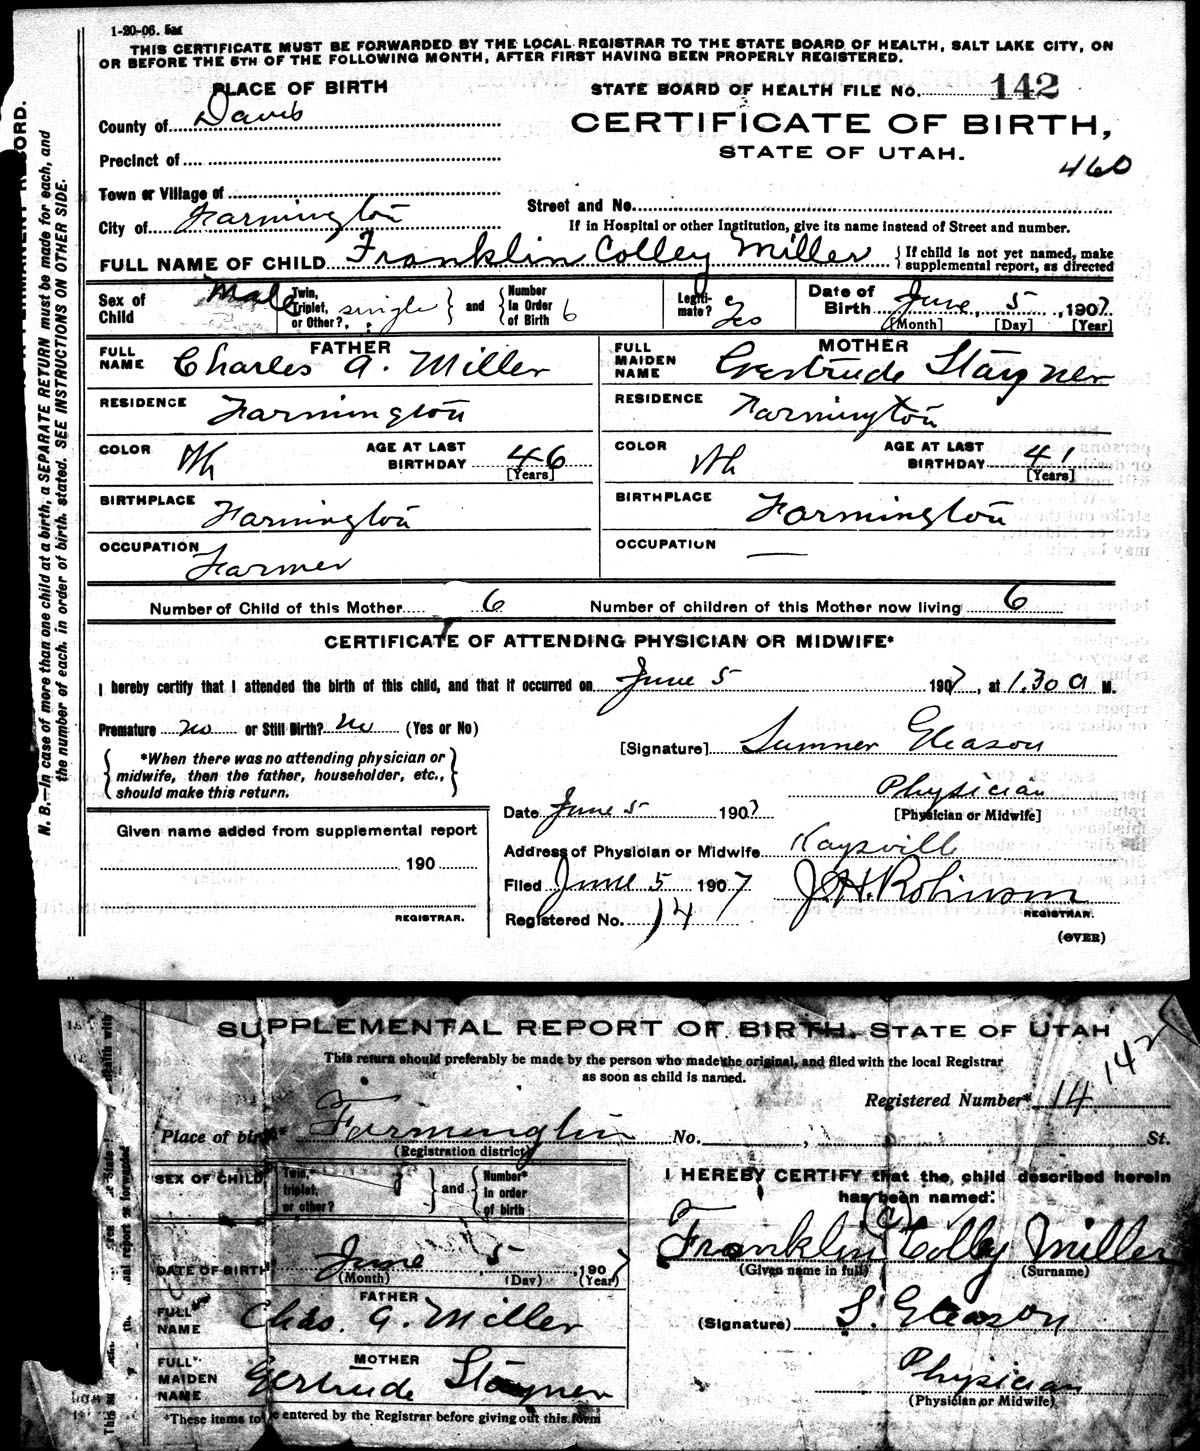 1-20-06. 5M
THIS CERTIFICATE MUST BE FORWARDED BY THE LOCAL REGISTRAR TO THE STATE BOARD OF HEALTH, SALT LAKE CITY, ON
OR BEFORE THE 5TH OF THE FOLLOWING MONTH, AFTER FIRST HAVING BEEN PROPERLY REGISTERED.
PLACE OF BIRTH
STATE BOARD OF HEALTH FILE No. 142
County of Davis
CERTIFICATE OF BIRTH,
STATE OF UTAH.
460
Precinct of
Town or Village of
City of Farmington
Street and No.
If in Hospital or other Institution, give its name instead of Street and number.
FULL NAME OF CHILD Franklin Colley Miller { If child is not yet named, make
supplemental report, as directed
Sex of Child Male
Twin, Triplet, or Other? single } and { Number In Order of Birth 6
Legitimate? Yes
Date of Birth June 5, 1907
[Month] [Day] [Year]
FATHER
FULL NAME Charles A. Miller
RESIDENCE Farmington
COLOR Wh AGE AT LAST BIRTHDAY 46
[Years]
BIRTHPLACE Farmington
OCCUPATION Farmer
MOTHER
FULL MAIDEN NAME Gertrude Stayner
RESIDENCE Farmington
COLOR Wh AGE AT LAST BIRTHDAY 41
[Years]
BIRTHPLACE Farmington
OCCUPATION —
Number of Child of this Mother 6 Number of children of this Mother now living 6
CERTIFICATE OF ATTENDING PHYSICIAN OR MIDWIFE*
I hereby certify that I attended the birth of this child, and that it occurred on June 5 1907, at 1.30 a M.
Premature no or Still Birth? no (Yes or No)
[Signature] Sumner Gleason
*When there was no attending physician or
midwife, then the father, householder, etc.,
should make this return.
Physician
[Physician or Midwife]
Date June 5 1907
Given name added from supplemental report
190
REGISTRAR.
Address of Physician or Midwife Kaysville
Filed June 5 1907 J.H. Robinson
REGISTRAR.
Registered No. 14
(OVER)
N. B.—In case of more than one child at a birth, a SEPARATE RETURN must be made for each, and
the number of each, in order of birth, stated. SEE INSTRUCTIONS ON OTHER SIDE.
SUPPLEMENTAL REPORT OF BIRTH. STATE OF UTAH
142
This return should preferably be made by the person who made the original, and filed with the local Registrar
as soon as child is named.
Registered Number* 14
Place of birth* Farmington No. , St.
(Registration district)
SEX OF CHILD
Twin, triplet, or other? } and { Number* in order of birth
I HEREBY CERTIFY that the child described herein
has been named:
(C)
Franklin Colley Miller
(Given name in full) (Surname)
DATE OF BIRTH June 5, 1907
(Month) (Day) (Year)
FATHER
FULL* NAME Chas. A. Miller
(Signature) S. Gleason
MOTHER
FULL* MAIDEN NAME Gertrude Stayner
Physician
(Physician or Midwife)
*These items to be entered by the Registrar before giving out this form